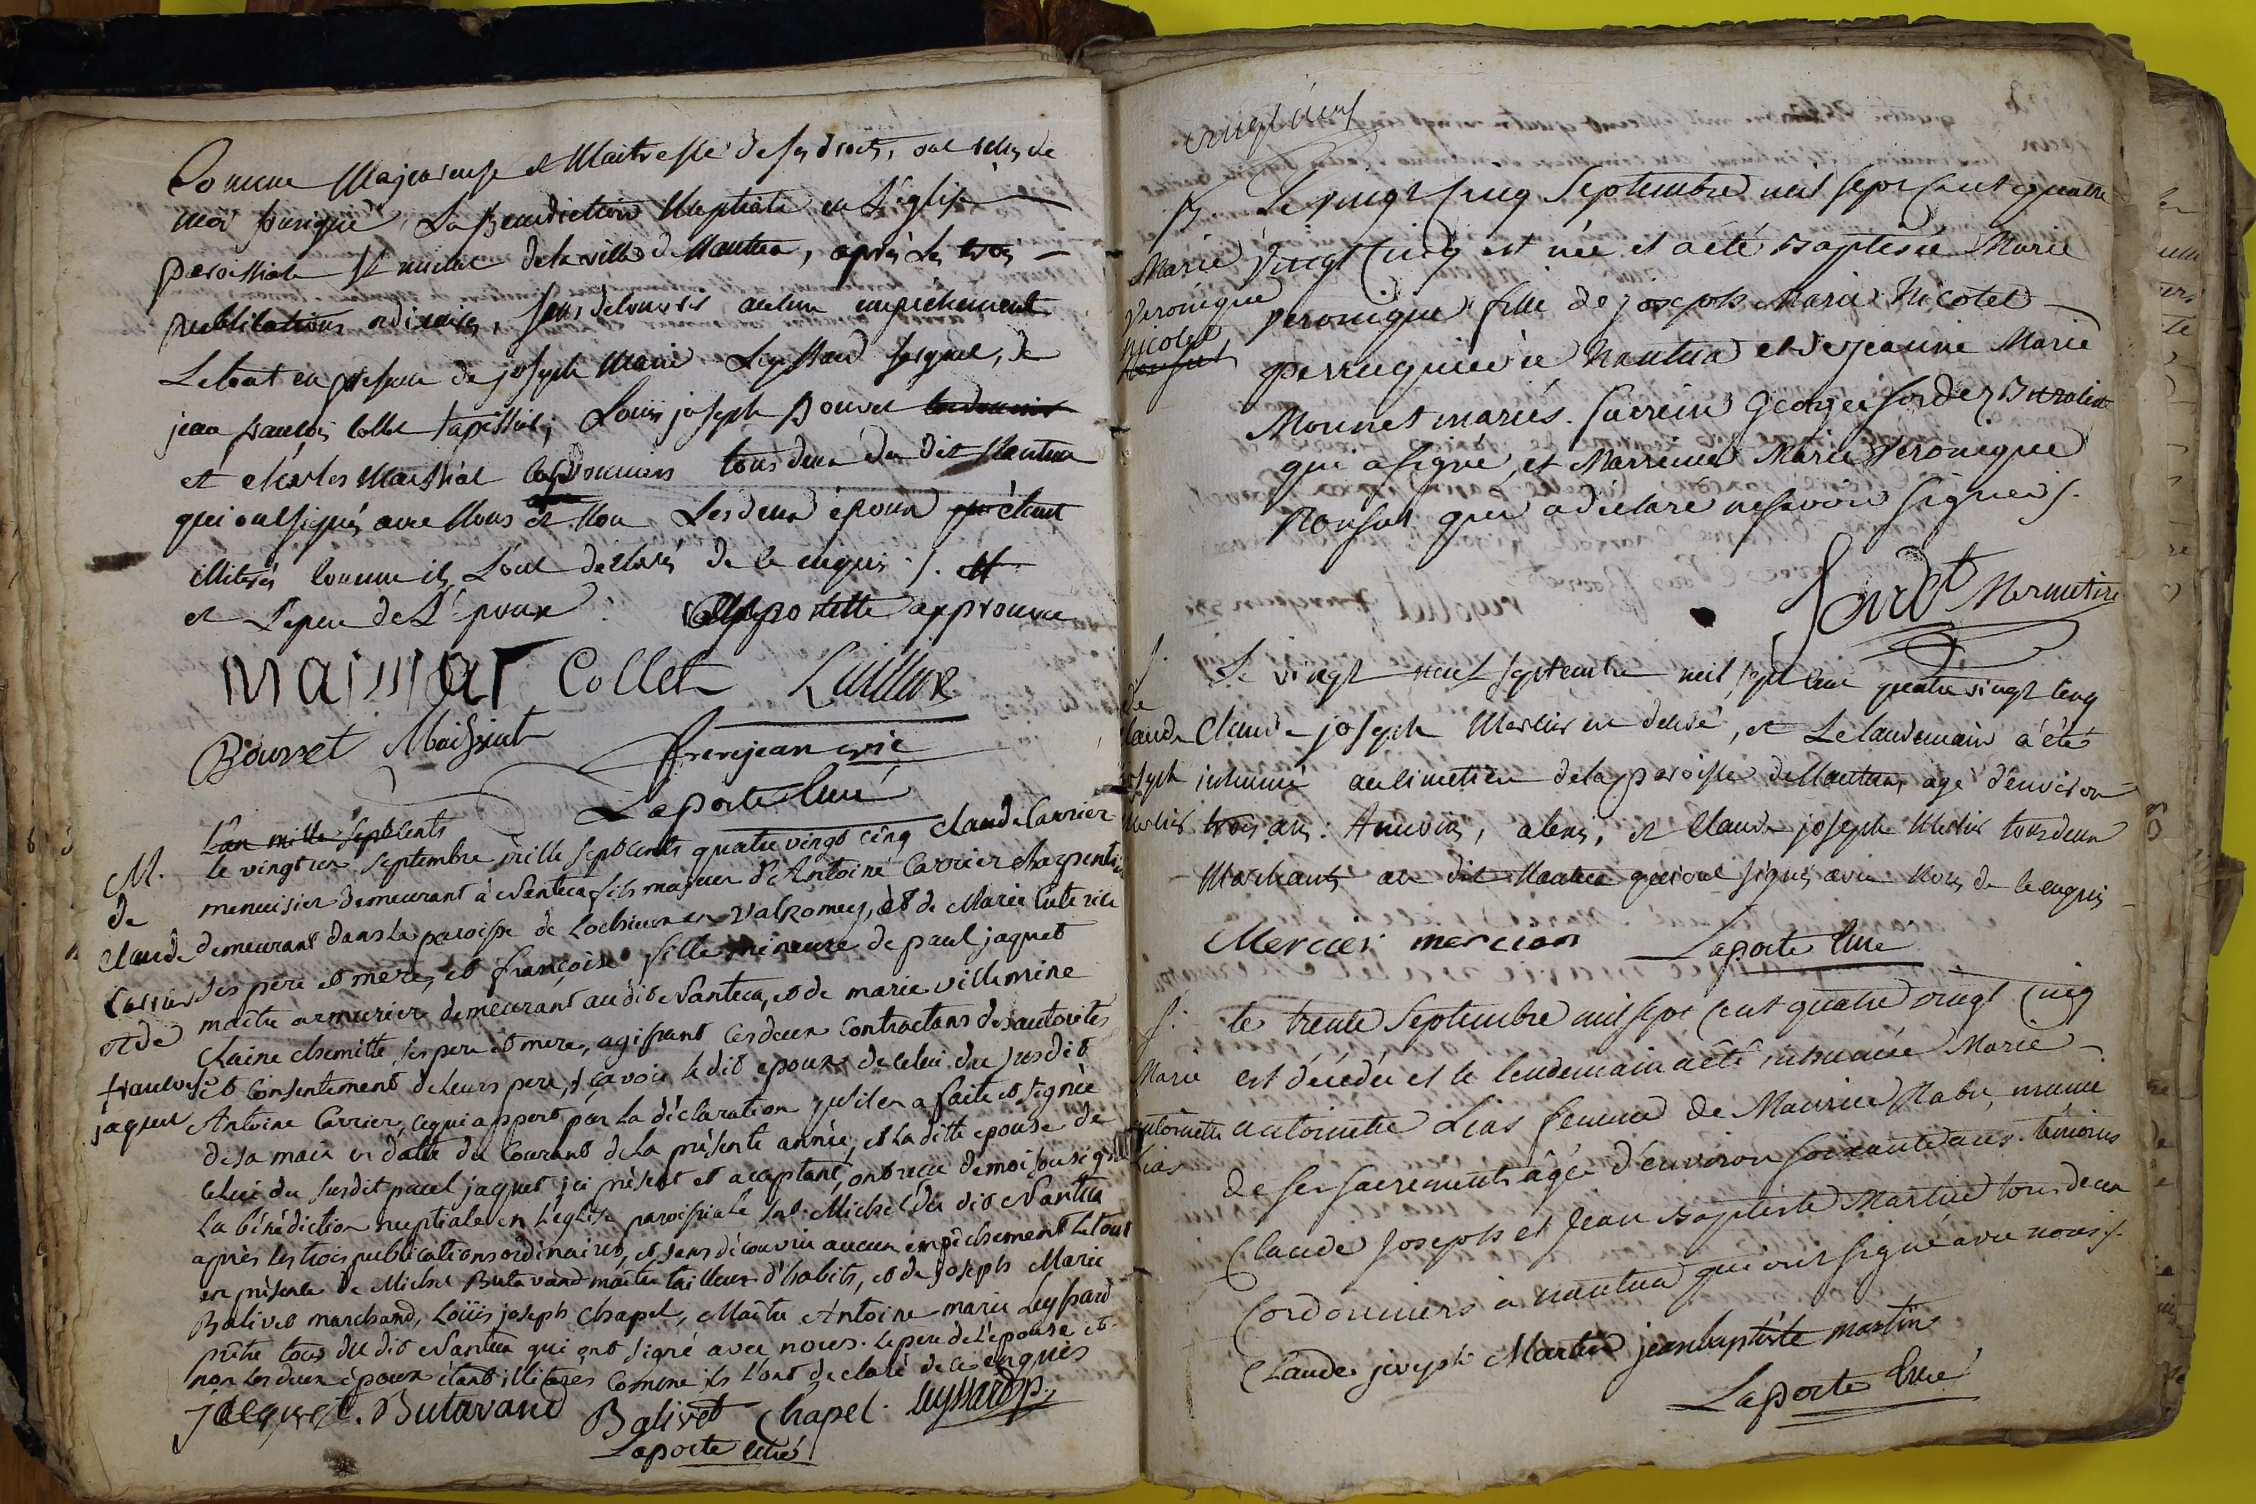 Comme Majeure et Maitresse de ses droits, ont reçu de
moi soussigné, La Benediction Nuptiale en L'église
paroissiale St michel de la ville de Nantua, après Les trois
publications ordinaires, sans decouvrir aucun empechement
Le tout en presence de joseph Marie Leyssard sergent, de
jean françois Collet tapissier, Louis joseph Bouvet cordonnier
et charles Maissiat cordonniers tous deux du dit Nantua
qui ont signés avec Nous et Non Les deux époux qui étant
illiterés comme ils L'ont declarés de ce enquis ./.
et Le pere de L'époux approuvé
maissiat Collet
Bouvet Maissiat
frerejean
Laporte Curé
L'an mille sept cents
M. le vingt un septembre mille sept cents quatre vingt cinq Claude Carrier
de menuisier demeurant à Nantua fils majeur d'Antoine Carrier charpentier
Claude demeurant dans la paroisse de Lochieu en Valromey, et de Marie
Carrier ses père et mère, et françoise fille mineure de paul jaquet
et de maitre armurier demeurant au dit Nantua, et de marie villermine
Claire ses pere et mere, agissant les deux contractans des autorités
françoise et consentement de leurs pere, sçavoir le dit epoux de celui du susdit
jaquet Antoine Carrier, ce qui appert par la déclaration qu'il en a faite et signée
de sa main en datte du courant de la présente année, et la ditte epouse de
celui du susdit paul jaquet ici présent et acceptant, ont reçu de moi soussigné
la bénédiction nuptiale en l'église paroissiale St. Michel du dit Nantua
après les trois publications ordinaires, et sans découvrir aucun empêchement le tout
en présence de Michel Butavand maitre tailleur d'habits, et de Joseph Marie
Balivet marchand, Loüis joseph Chapel, Maitre Antoine marie Leyssard
prêtre tous du dit Nantua qui ont signé avec nous. Le pere de l'epouse et
non les deux époux étant illiterés comme ils l'ont declaré de ce enquis
jacquet. Butavand Balivet Chapel. Leyssard p.
Laporte Curé
vingt neuf
Le vingt cinq Septembre mil sept cent quatre
Marie vingt cinq est née et a été Baptisée Marie
Veronique Veronique fille de joseph Marie Nicolet
Nicolet perruquier à Nantua et de jeanne Marie
Monnet mariés. parrein George
qui a signé, et Marreine Marie Veronique
qui a déclaré ne savoir signer ./.
Mermet vire
S. Le vingt neuf septembre mil sept cent quatre vingt cinq
de
Claude Claude joseph Mercier est decedé, et Le landemain a été
joseph inhumé au cimetiere de la paroisse de Nantua, agé d'environ
Mercier trois ans. Temoins, alexis, et Claude joseph Mercier tous deux
Marchants au dit Nantua qui ont signés avec Nous de ce enquis
Mercier mercier Laporte Curé
S. le trente Septembre mil sept cent quatre vingt cinq
Marie est décédée et le lendemain a été inhumée Marie
antoinette antoinette Lias femme de Maurice Nabu, munie
Lias de ses sacrements âgée d'environ soixante ans. témoins
Claude Joseph et Jean Baptiste Martin tous deux
Cordonniers à nantua qui ont signé avec nous ./.
Claude joseph Martin jean baptiste martin
Laporte Curé